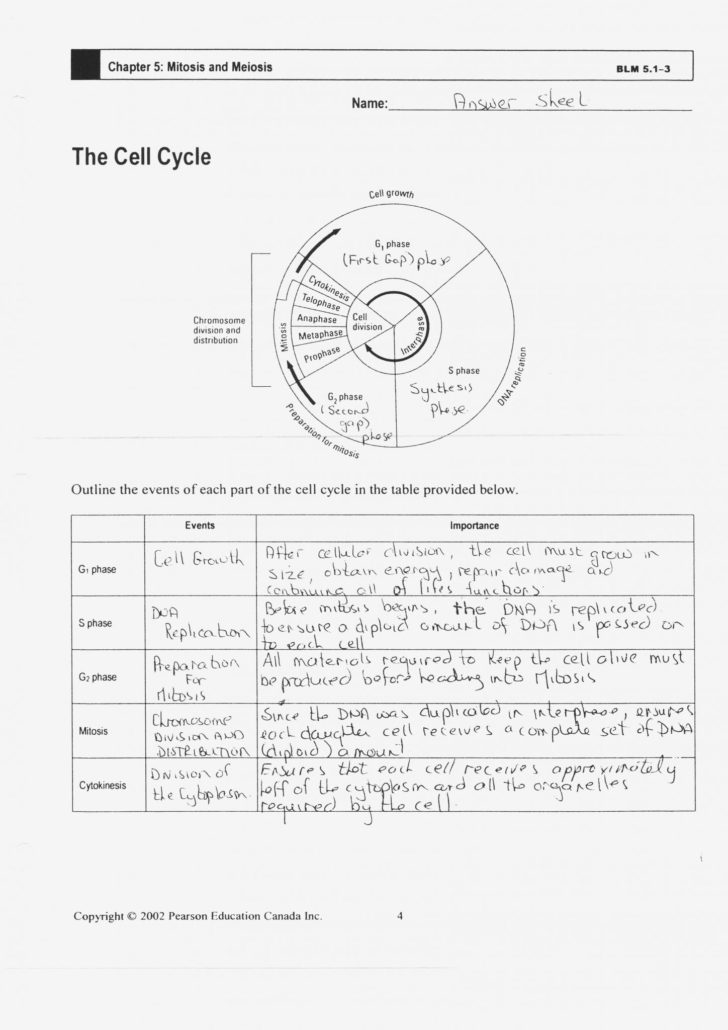 Chapter 5: Mitosis and Meiosis
BLM 5.1–3
Name: Answer Sheet
The Cell Cycle
Cell growth
G₁ phase
(First Gap) phase
Cytokinesis
Telophase
Anaphase
Metaphase
Prophase
Cell
division
Interphase
Mitosis
Chromosome
division and
distribution
S phase
Synthesis
Phase
DNA replication
G₂ phase
(Second
gap)
phase
Preparation for mitosis
Outline the events of each part of the cell cycle in the table provided below.
Events
Importance
G₁ phase
Cell Growth
After cellular division, the cell must grow in
size, obtain energy, repair damage and
continuing all of lifes functions.
S phase
DNA
Replication
Before mitosis begins, the DNA is replicated
to ensure a diploid amount of DNA is passed on
to each cell
G₂ phase
Preparation
For
Mitosis
All materials required to keep the cell alive must
be produced before heading into Mitosis
Mitosis
Chromosome
DIVISION AND
DISTRIBUTION
Since the DNA was duplicated in interphase, ensures
each daughter cell receives a complete set of DNA
(diploid) amount
Cytokinesis
Division of
the Cytoplasm.
Ensures that each cell receives approximately
half of the cytoplasm and all the organelles
required by the cell.
Copyright © 2002 Pearson Education Canada Inc.
4